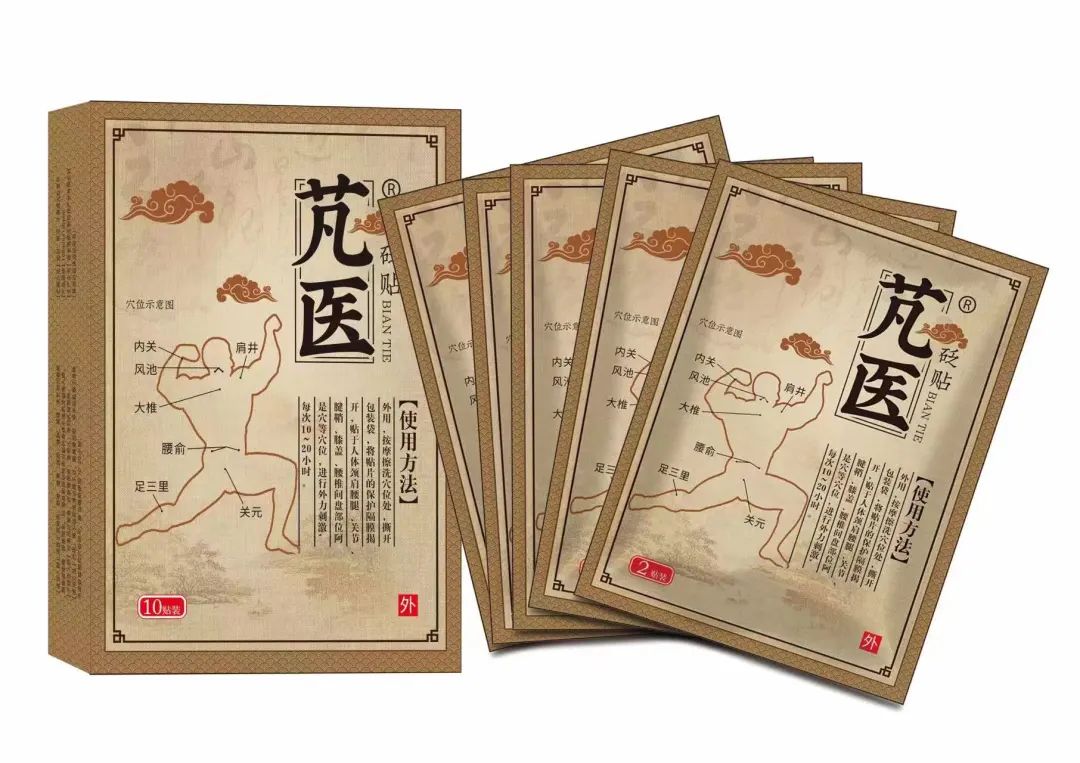 芃医
®
砭贴
BIAN TIE
穴位示意图
内关
风池
大椎
肩井
腰俞
足三里
关元
【使用方法】
外用，按摩擦洗穴位处，撕开
包装袋，将贴片的保护隔膜揭
开，贴于人体颈肩腰腿、关节、
腱鞘、膝盖、腰椎间盘部位阿
是穴等穴位，进行外力刺激，
每次10~20小时。
10贴装
外
穴位示意图
内关
穴位示意图
内关
风池
大椎
足三里
芃医
®
砭贴
BIAN TIE
穴位示意图
内关
风池
大椎
肩井
腰俞
足三里
关元
【使用方法】
外用，按摩擦洗穴位处，撕开
包装袋，将贴片的保护隔膜揭
开，贴于人体颈肩腰腿、关节、
腱鞘、膝盖、腰椎间盘部位阿
是穴等穴位，进行外力刺激，
每次10~20小时。
2贴装
外